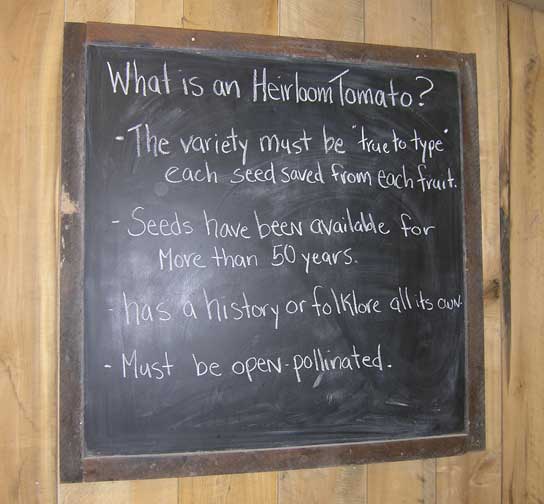 What is an Heirloom Tomato?
- The variety must be "true to type"
each seed saved from each fruit.
- Seeds have been available for
More than 50 years.
- has a history or folklore all its own.
- Must be open-pollinated.